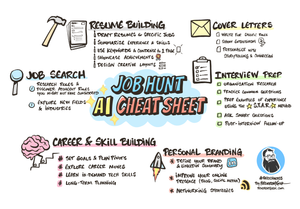 RESUME BUILDING
DRAFT RESUMES FOR SPECIFIC JOBS
SUMMARIZE EXPERIENCE & SKILLS
USE KEYWORDS &
SHOWCASE ACHIEVEMENTS
DESIGN CREATIVE LAYOUTS
COVER LETTERS
WRITE FOR SPECIFIC ROLES
PERSONALIZE WITH
STORYTELLING & CONNECTION
JOB SEARCH
RESEARCH ROLES &
DISCOVER ADJACENT ROLES
YOU MIGHT NOT HAVE CONSIDERED
EXPLORE NEW FIELDS
& INDUSTRIES
JOB HUNT
AI CHEAT SHEET
INTERVIEW PREP
ORGANIZATION RESEARCH
PRACTICE COMMON QUESTIONS
PREP EXAMPLES OF EXPERIENCE
USING THE S.T.A.R. METHOD
ASK SMART QUESTIONS
POST-INTERVIEW FOLLOW-UP
CAREER & SKILL BUILDING
SET GOALS & PLAN PIVOTS
EXPLORE CAREER MOVES
LEARN IN-DEMAND TECH SKILLS
LONG-TERM PLANNING
PERSONAL BRANDING
DEFINE YOUR BRAND
& LINKEDIN SUMMARY
IMPROVE YOUR ONLINE
PRESENCE (BLOG, SOCIAL MEDIA)
NETWORKING STRATEGIES